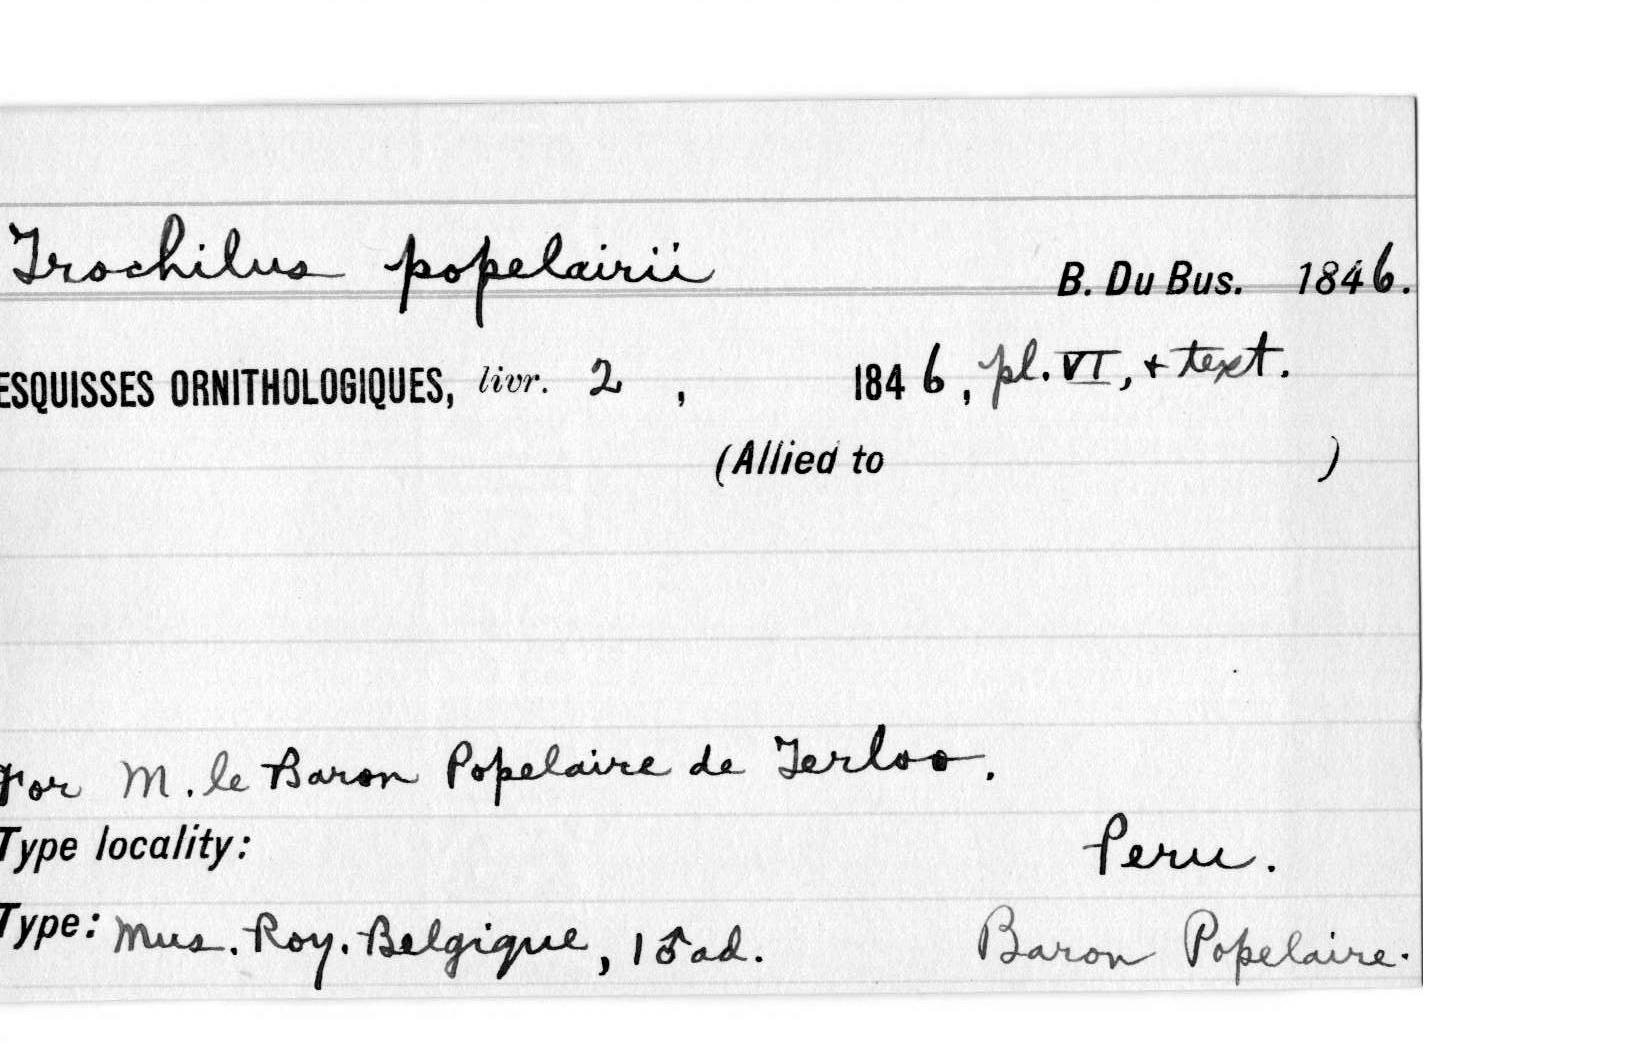 Trochilus popelairii B. Du Bus. 1846.
ESQUISSES ORNITHOLOGIQUES, livr. 2 , 1846, pl. VI, + text.
(Allied to )
For M. le Baron Popelaire de Terloo.
Type locality: Peru.
Type: Mus. Roy. Belgique, 1 ♂ ad. Baron Popelaire.